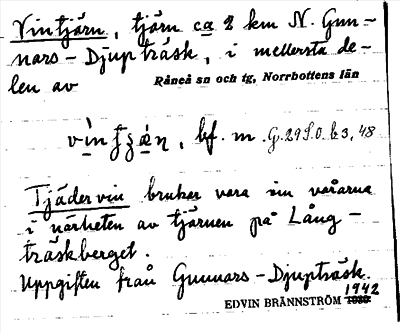 Vintjärn, tjärn ca 2 km N. Gun-
nars-Djupträsk, i mellersta de-
len av Råneå sn och tg, Norrbottens län
bf. m. G. 29 S.O. b 3, 48
Tjädervin brukar vara om vårarna
i närheten av tjärnen på Lång-
träskberget.
Uppgiften från Gunnars-Djupträsk.
1942
EDVIN BRÄNNSTRÖM